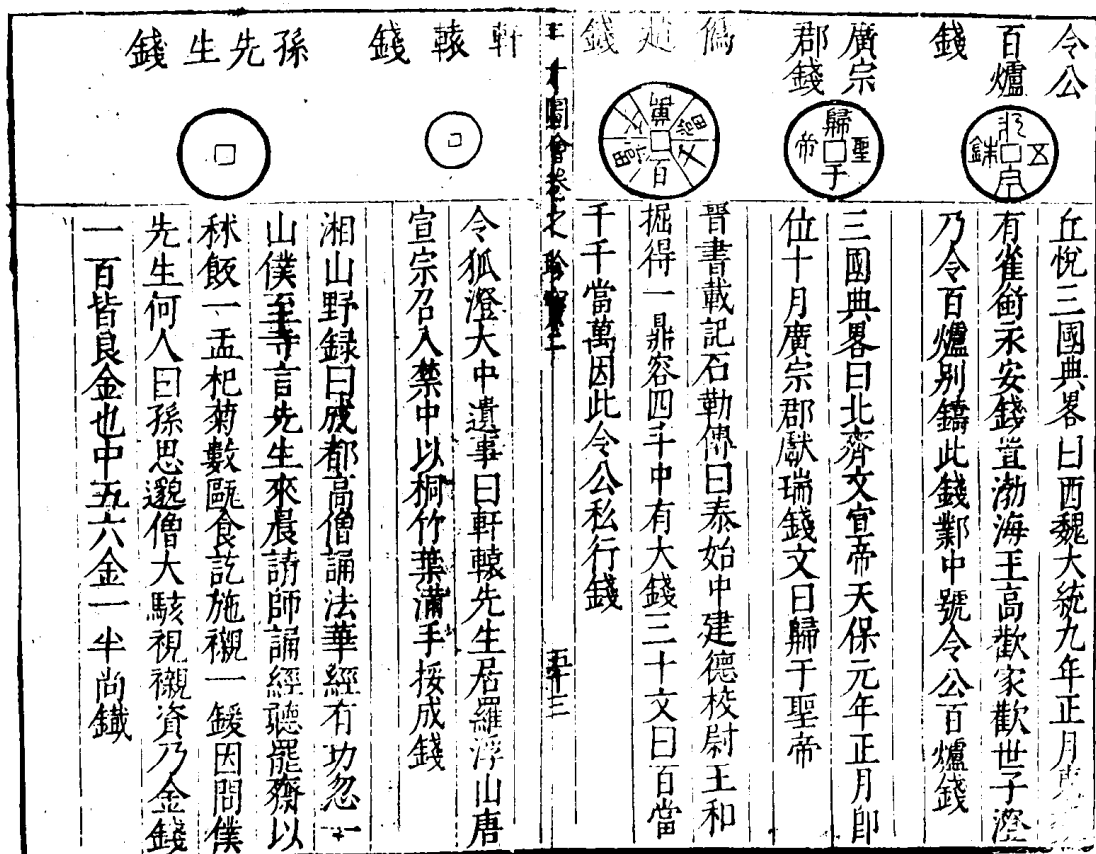 令公
百爐
錢
五
銖
丘悅三國典畧曰西魏大統九年正月
有雀銜永安錢置渤海王高歡家歡世子澄
乃令百爐别鑄此錢鄴中號令公百爐錢
廣宗
郡錢
歸
于
聖
帝
三國典畧曰北齊文宣帝天保元年正月即
位十月廣宗郡獻瑞錢文曰歸于聖帝
僞趙
錢
百
晋書載記石勒傳曰泰始中建德校尉王和
掘得一鼎容四千中有大錢三十文曰百當
千千當萬因此令公私行錢
三才圖會卷之珍寶二
五十三
軒轅錢
令狐澄大中遺事曰軒轅先生居羅浮山唐
宣宗召入禁中以桐竹葉滿手挼成錢
孫先生錢
湘山野録曰成都高僧誦法華經有功忽一
山僕至寺言先生來晨請師誦經聽罷齋以
秫飯一盂杞菊數甌食訖施襯一鍰因問僕
先生何人曰孫思邈僧大駭視襯資乃金錢
一百皆良金也中五六金一半尚鐵